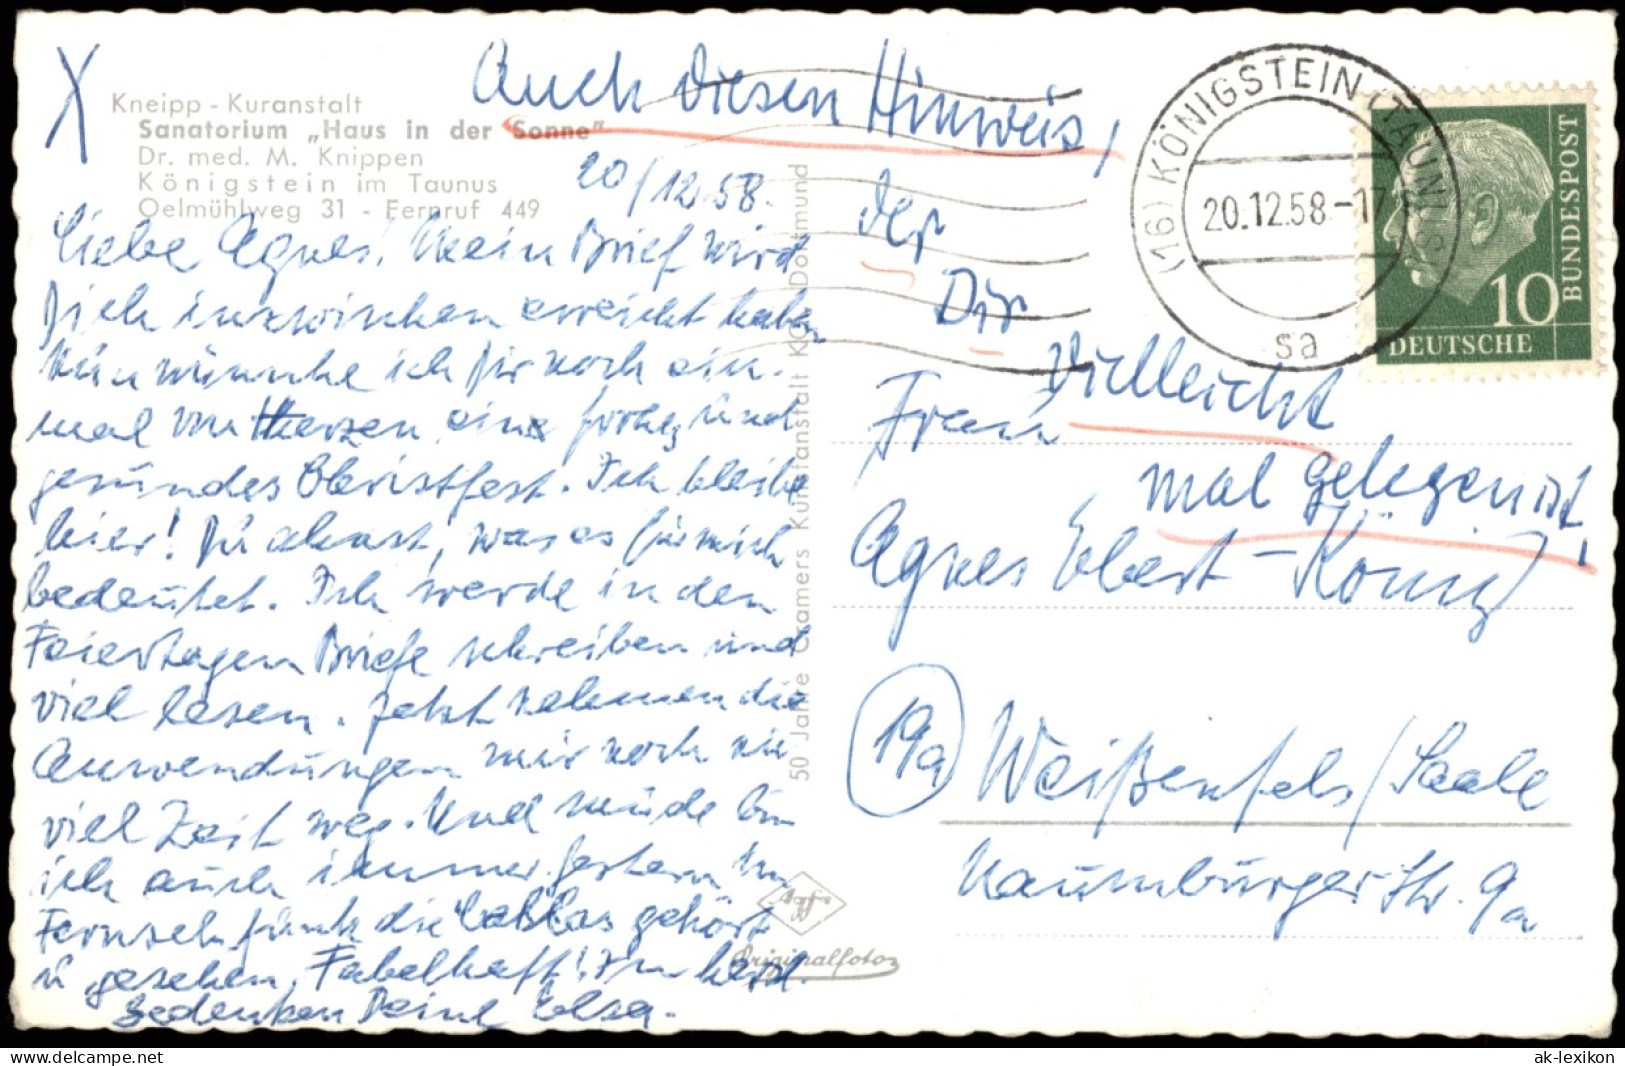 Auch diesen Hinweis,
der
Dir
vielleicht
mal gelegen ist!
X
Kneipp - Kuranstalt
Sanatorium „Haus in der Sonne"
Dr. med. M. Knippen
Königstein im Taunus
Oelmühlweg 31 - Fernruf 449
20/12.58.
Liebe Agnes! Mein Brief wird
Dich inzwischen erreicht haben
Nun wünsche ich Dir noch ein-
mal von Herzen ein frohes und
gesundes Christfest. Ich bleibe
hier! Du ahnst, was es für mich
bedeutet. Ich werde in den
Feiertagen Briefe schreiben und
viel lesen. Jetzt nehmen die
Anwendungen mir noch zu
viel Zeit weg. Und müde bin
ich auch immer. gestern im
Fernsehfunk die Callas gehört
u gesehen. Fabelhaft! In herzl.
Gedenken Deine Elsa.
50 Jahre Cramers Kunstanstalt KG, Dortmund
Agfa
Originalfoto
(16) KÖNIGSTEIN (TAUNUS)
20.12.58.-17
sa
DEUTSCHE
BUNDESPOST
10
Frau
Agnes Ebert-König
19a
Weißenfels/Saale
Naumburger Str. 9a
www.delcampe.net
ak-lexikon